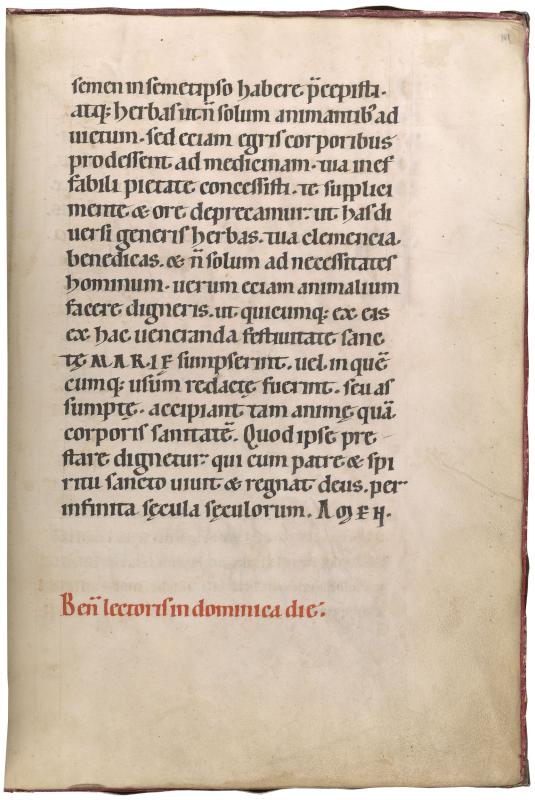 semen in semetipso habere p̄cepisti.
atq; herbas ut n̄ solum animantib᾽ ad
uictum. sed eciam egris corporibus
prodessent ad medicinam. tua inef
fabili pietate concessisti. te supplici
mente & ore deprecamur. ut has di
uersi generis herbas. tua clemencia.
benedicas. & n̄ solum ad necessitates
hominum. uerum eciam animalium
facere digneris. ut quicumq; ex eis
ex hac ueneranda festiuitate sanc
tę MARIE sumpserint. uel in quē
cumq; usum redactę fuerint. seu as
sumptę. accipiant tam animę quā
corporis sanitatē. Quod ipse pre
stare dignetur qui cum patre & spi
ritu sancto uiuit & regnat deus. per
infinita sęcula sęculorum. AMEN.
Ben̄ lectoris in dominica die.